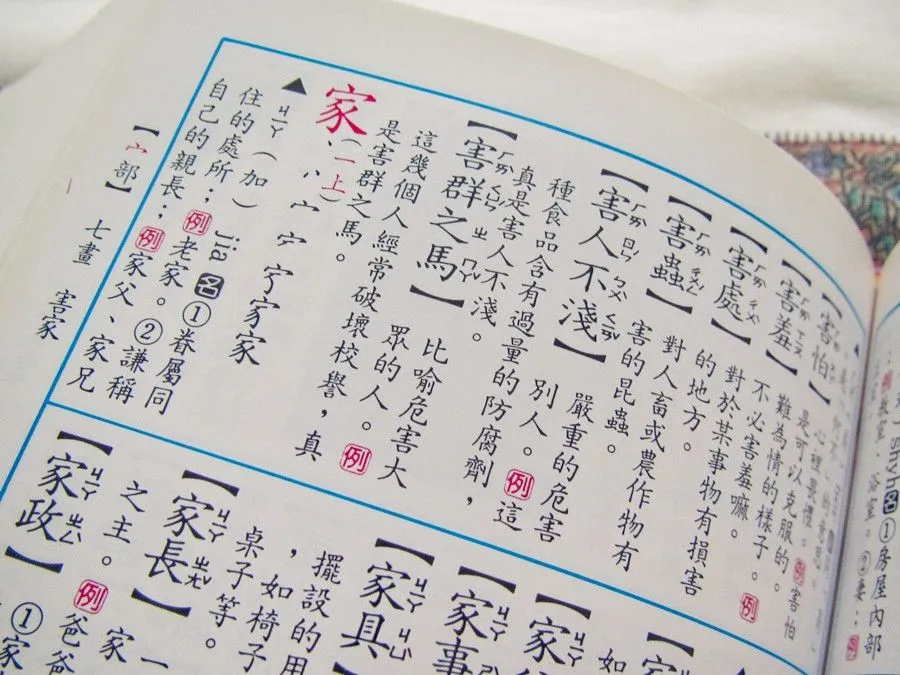 shyh 名①房屋內部
【害怕】心裡畏懼。例害怕
是可以克服的。
【害羞】難為情的樣子。例
不必害羞嘛。
【害處】對於某事物有損害
的地方。
【害蟲】對人畜或農作物有
害的昆蟲。
【害人不淺】嚴重的危害
別人。例這
種食品含有過量的防腐劑，
真是害人不淺。
【害群之馬】比喻危害大
眾的人。例
這幾個人經常破壞校譽，真
是害群之馬。
家（一上）
丶 宀 家家
▲ㄐㄧㄚ（加）jia 名①眷屬同
住的處所；例老家。②謙稱
自己的親長；例家父、家兄
【家
如
【家
【家事
【家具
擺設的用
，如椅子
桌子等。
【家長】家一
之主。例爸爸
【家政】①家
【宀部】七畫 害家